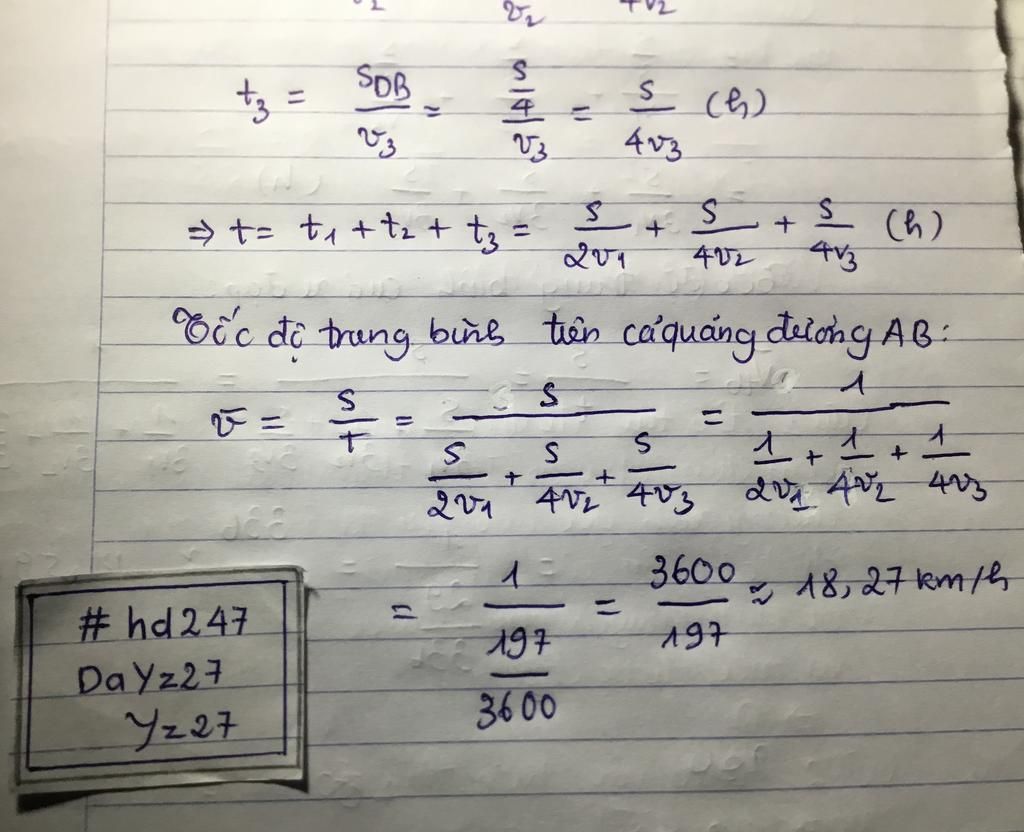 v₂ 4v₂
t₃ = S_DB/v₃ = (s/4)/v₃ = s/4v₃ (h)
⇒ t = t₁ + t₂ + t₃ = s/2v₁ + s/4v₂ + s/4v₃ (h)
Tốc độ trung bình trên cả quãng đường AB:
v̄ = s/t = s/(s/2v₁ + s/4v₂ + s/4v₃) = 1/(1/2v₁ + 1/4v₂ + 1/4v₃)
= 1/(197/3600) = 3600/197 ≈ 18,27 km/h
# hd247
DaYz27
Yz27